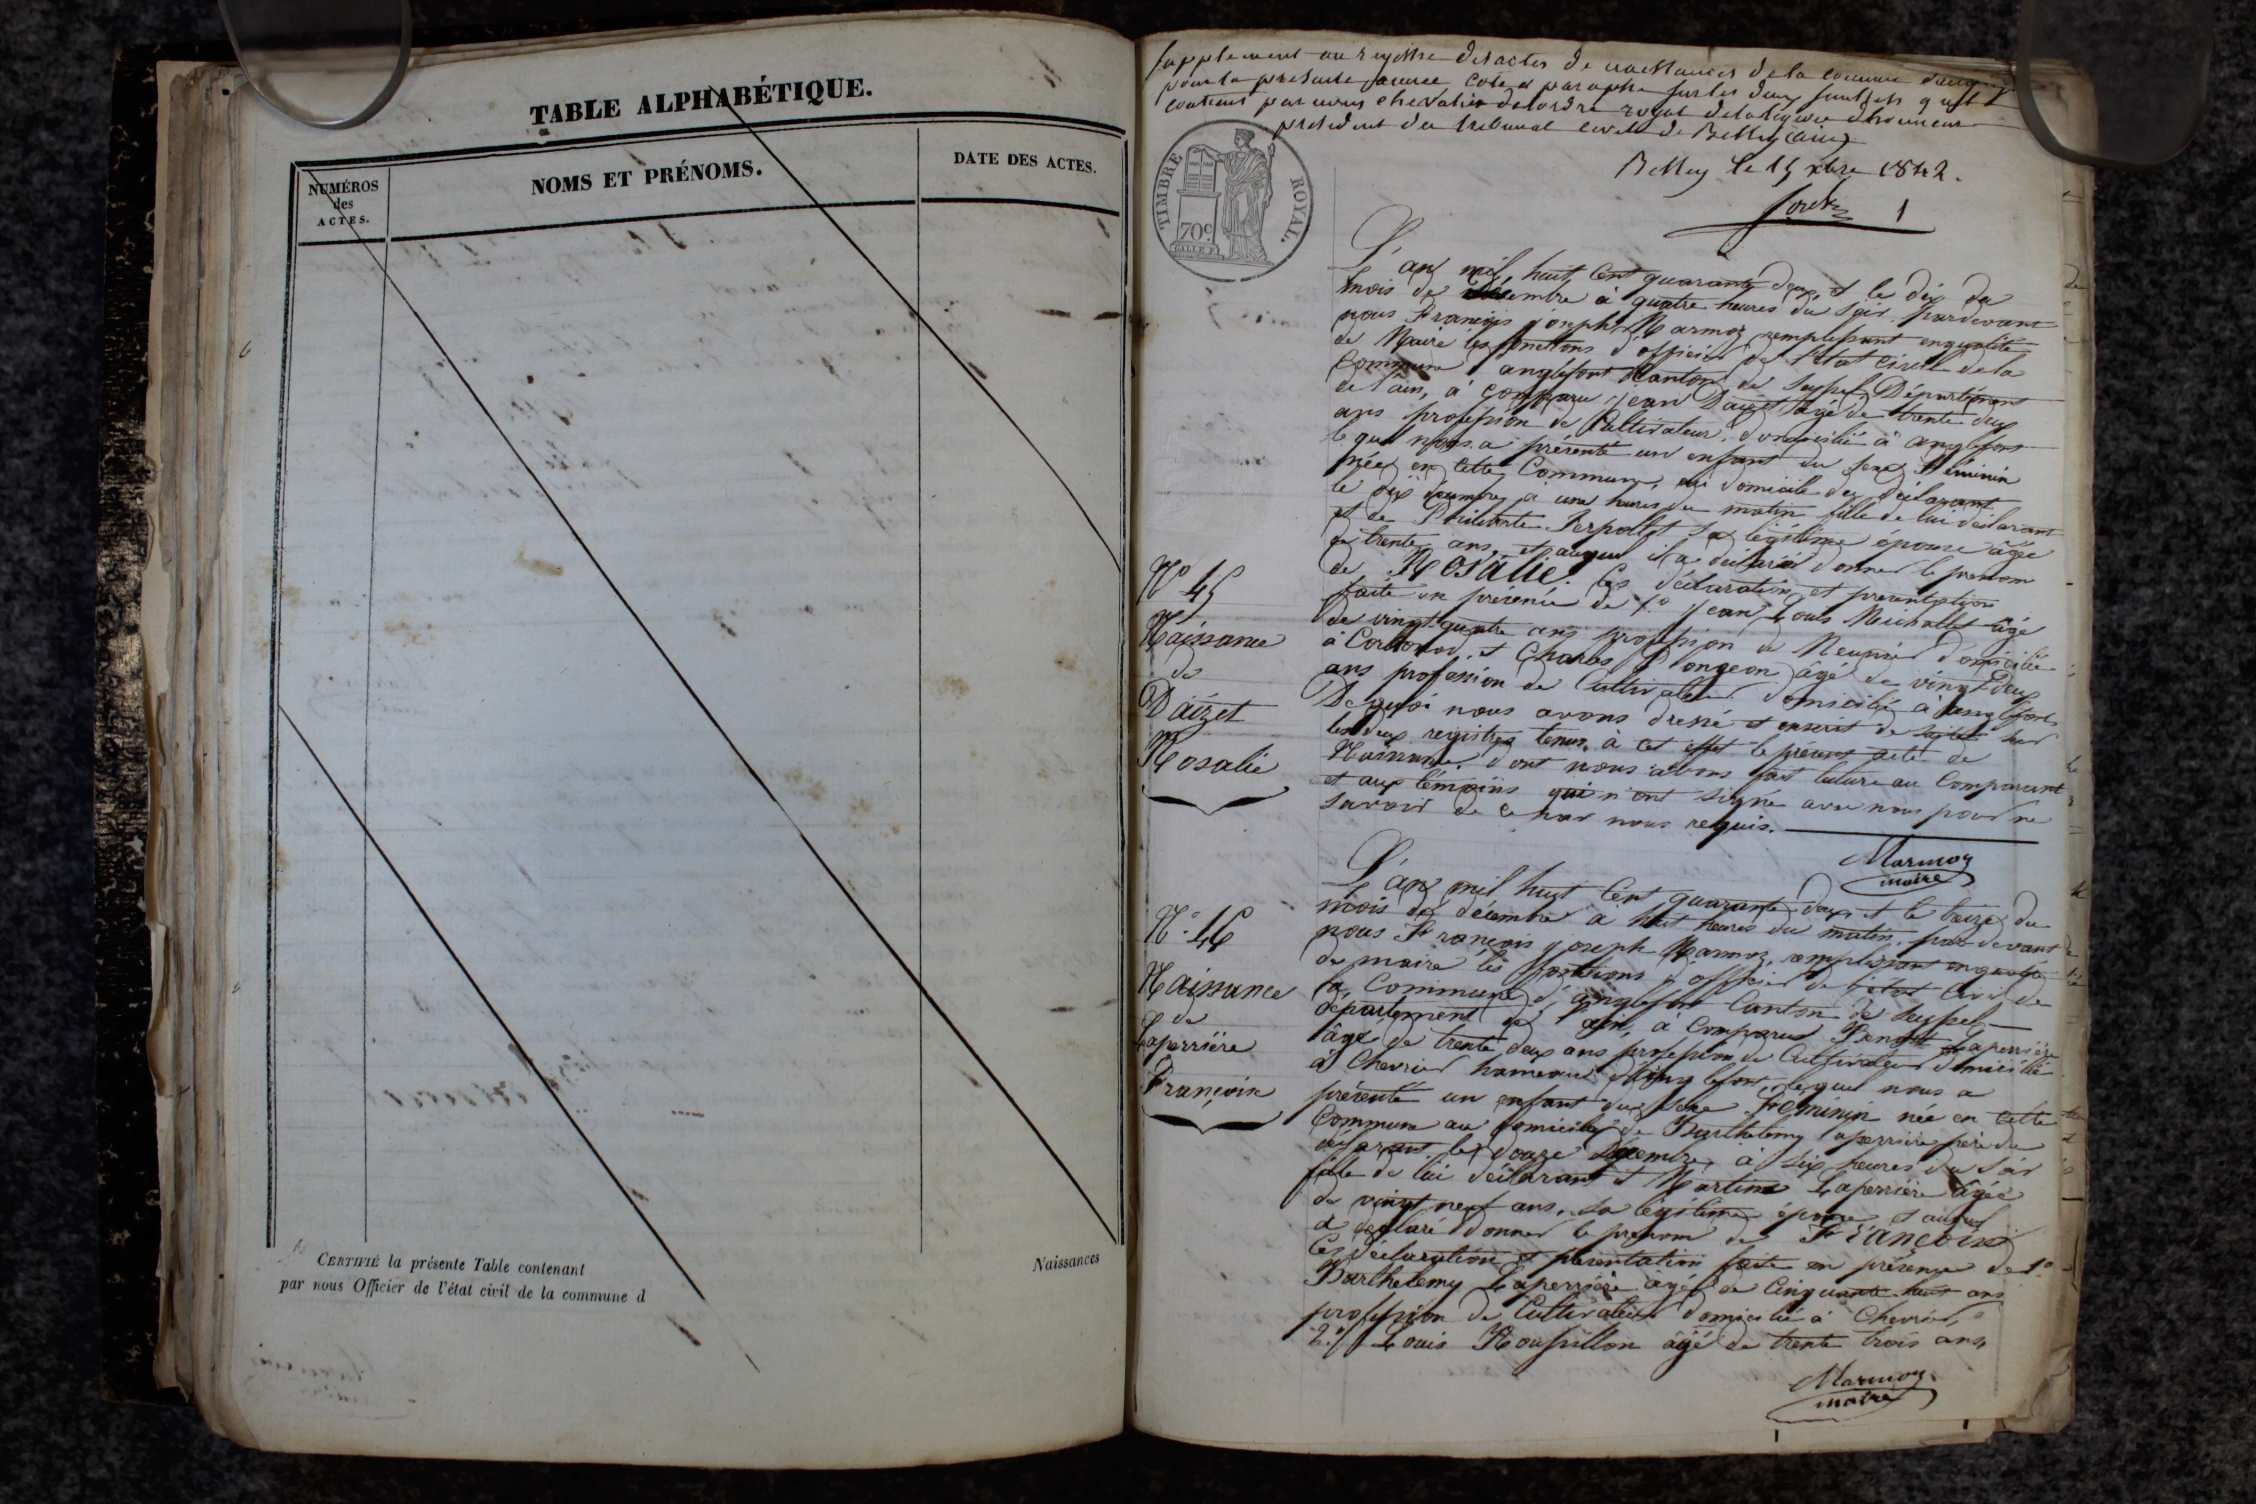 TABLE ALPHABÉTIQUE.
NUMÉROS
des
ACTES.
NOMS ET PRÉNOMS.
DATE DES ACTES.
CERTIFIÉ la présente Table contenant
Naissances
par nous Officier de l'état civil de la commune d
supplement au registre des actes de naissances de la commune
pour la presente année coté et paraphé sur les deux feuillets qu'il
contient par nous chevalier de l'ordre royal de la légion d'honneur
président du tribunal civil de Belley (ain)
Belley le 15 xbre 1842.
1
TIMBRE ROYAL.
70c
L'an mil huit Cent quarante deux et le dix du
mois de décembre à quatre heures du soir pardevant
nous François joseph Marmoz remplissant en qualité
de Maire les fonctions d'officier de l'état Civil de la
Commune anglefort Canton de Seyssel Département
de l'ain, à comparu jean Daizet âgé de trente deux
ans profession de Cultivateur, domicilié à anglefort
lequel nous a présenté un enfant du sexe Féminin
née en cette Commune, au domicile du déclarant
le dix décembre à une heures du matin fille de lui déclarant
et de Philiberte Serpollet sa légitime épouse âgée
de trente ans, et auquel il a déclaré donner le prenom
de Rosalie. Ces déclaration et presentation
faite en présence de 1º jean Louis Michallet âgé
de vingt quatre ans profession de Meunier domicilié
à Corbonod, et Charles Plongeon âgé de vingt deux
ans profession de Cultivateur domicilié à anglefort
De quoi nous avons dressé et inscrit de suite sur
les deux registres tenus à cet effet le présent acte de
Naissance, dont nous avons fait lecture au Comparant
et aux témoins qui n'ont signé avec nous pour ne
savoir de ce par nous requis.
Marmoz
maire
Nº 45
Naissance
de
Daizet
Rosalie
L'an mil huit Cent quarante deux et le treize du
mois de décembre à huit heures du matin, par devant
nous François joseph Marmoz, remplissant en qualité
de maire les fonctions d'officier de l'état Civil de
la Commune d'anglefort Canton de Seyssel
département de l'ain, à Comparu Benoit Laperrière
âgé de trente deux ans profession de Cultivateur domicilié
à Chevrier hameau d'anglefort, lequel nous a
présenté un enfant du sexe Féminin née en cette
Commune au domicile de Barthelemy laperrière père du
déclarant le douze Décembre, à six heures du soir
fille de lui déclarant et Martine Laperrière âgée
de vingt neuf ans, sa légitime épouse et auquel
a déclaré donner le prenom de Françoise
Ces déclaration et présentation faite en présence de 1º
Barthelemy Laperrière âgé de Cinquante huit ans
profession de Cultivateur domicilié à Chevrier,
2º Louis Roussillon âgé de trente trois ans,
Marmoz
maire
Nº 46
Naissance
de
Laperrière
Françoise